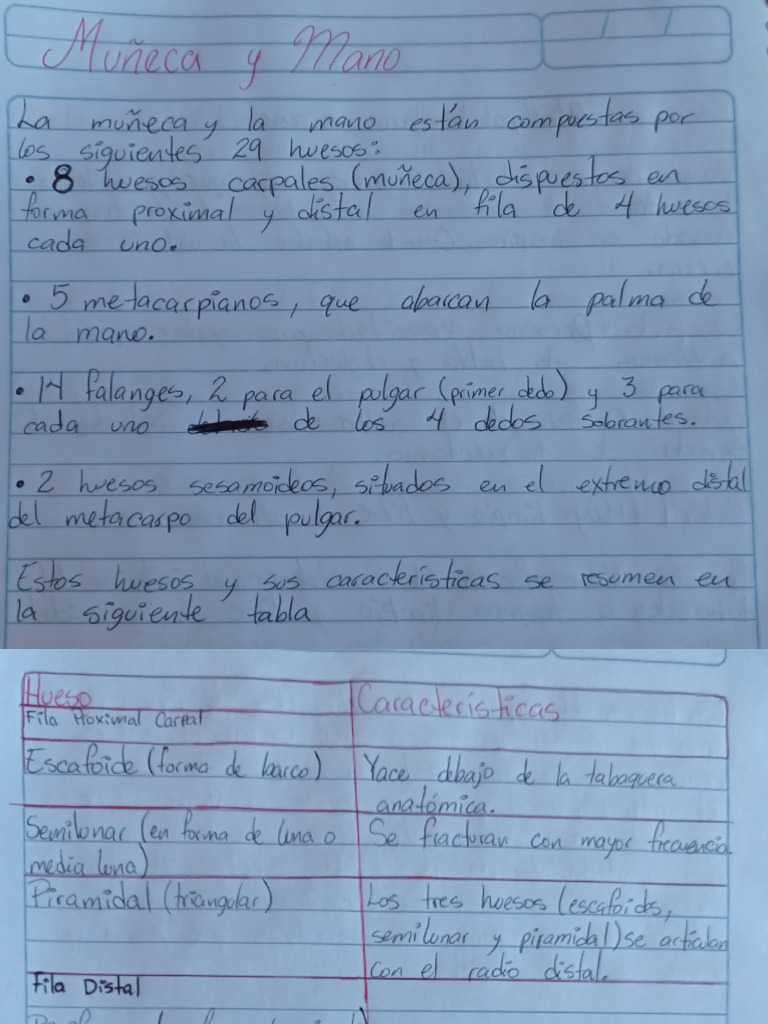 Muñeca y Mano
La muñeca y la mano están compuestas por
los siguientes 29 huesos:
• 8 huesos carpales (muñeca), dispuestos en
forma proximal y distal en fila de 4 huesos
cada uno.
• 5 metacarpianos, que abarcan la palma de
la mano.
• 14 falanges, 2 para el pulgar (primer dedo) y 3 para
cada uno de los 4 dedos sobrantes.
• 2 huesos sesamoideos, situados en el extremo distal
del metacarpo del pulgar.
Estos huesos y sus características se resumen en
la siguiente tabla
Hueso
Características
Fila Proximal Carpal
Escafoide (forma de barco)
Yace debajo de la tabaquera
anatómica.
Semilunar (en forma de luna o
media luna)
Se fracturan con mayor frecuencia
Piramidal (triangular)
Los tres huesos (escafoides,
semilunar y piramidal) se articulan
con el radio distal.
Fila Distal